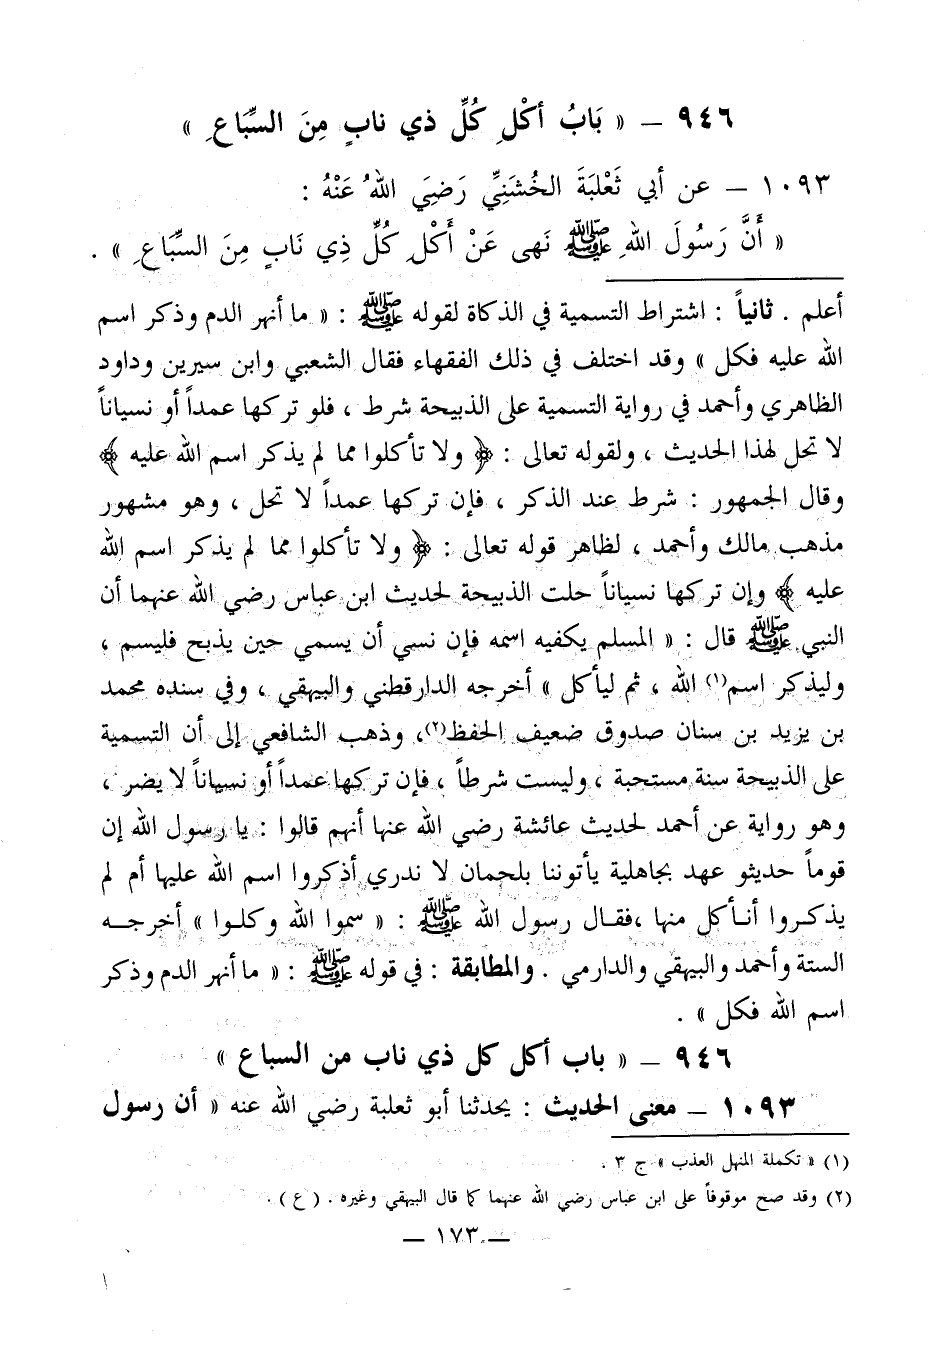 ٩٤٦ – « بَابُ أَكْلِ كُلِّ ذي نابٍ مِنَ السِّبَاعِ »
١٠٩٣ – عن أبي ثَعْلبَةَ الخُشَنِيِّ رَضِيَ اللهُ عَنْهُ :
« أَنَّ رَسُولَ اللهِ ﷺ نَهى عَنْ أَكْلِ كُلِّ ذِي نَابٍ مِنَ السِّبَاعِ » .
أعلم . ثانياً : اشتراط التسمية في الذكاة لقوله ﷺ : « ما أنهر الدم وذكر اسم
الله عليه فكل » وقد اختلف في ذلك الفقهاء فقال الشعبي وابن سيرين وداود
الظاهري وأحمد في رواية التسمية على الذبيحة شرط ، فلو تركها عمداً أو نسياناً
لا تحل لهذا الحديث ، ولقوله تعالى : ﴿ ولا تأكلوا مما لم يذكر اسم الله عليه ﴾
وقال الجمهور : شرط عند الذكر ، فإن تركها عمداً لا تحل ، وهو مشهور
مذهب مالك وأحمد ، لظاهر قوله تعالى : ﴿ ولا تأكلوا مما لم يذكر اسم الله
عليه ﴾ وإن تركها نسياناً حلت الذبيحة لحديث ابن عباس رضي الله عنهما أن
النبي ﷺ قال : « المسلم يكفيه اسمه فإن نسي أن يسمي حين يذبح فليسم ،
وليذكر اسم(١) الله ، ثم ليأكل » أخرجه الدارقطني والبيهقي ، وفي سنده محمد
بن يزيد بن سنان صدوق ضعيف الحفظ(٢)، وذهب الشافعي إلى أن التسمية
على الذبيحة سنة مستحبة ، وليست شرطاً ، فإن تركها عمداً أو نسياناً لا يضر ،
وهو رواية عن أحمد لحديث عائشة رضي الله عنها أنهم قالوا : يا رسول الله إن
قوماً حديثو عهد بجاهلية يأتوننا بلحمان لا ندري أذكروا اسم الله عليها أم لم
يذكروا أنأكل منها ،فقال رسول الله ﷺ : « سموا الله وكلوا » أخرجه
الستة وأحمد والبيهقي والدارمي . والمطابقة : في قوله ﷺ : « ما أنهر الدم وذكر
اسم الله فكل » .
٩٤٦ – « باب أكل كل ذي ناب من السباع »
١٠٩٣ – معنى الحديث : يحدثنا أبو ثعلبة رضي الله عنه « أن رسول
(١) « تكملة المنهل العذب » ج ٣ .
(٢) وقد صح موقوفاً على ابن عباس رضي الله عنهما كما قال البيهقي وغيره . ( ع ) .
– ١٧٣ –